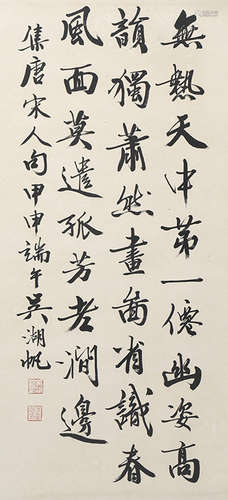 無熱天中第一僊幽姿高
韻獨蕭然畫面省識春
風面莫遣孤芳老澗邊
集唐宋人句甲申端午吳湖帆